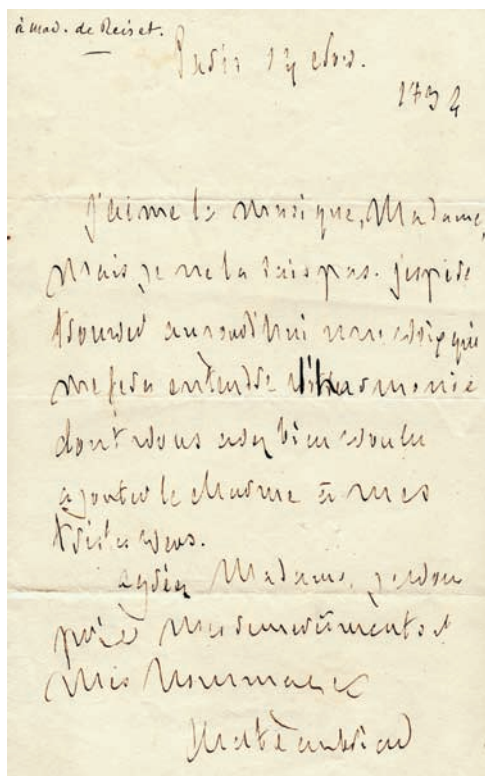 à mad. de Reiset.
Paris
J'aime la musique, Madame,
mais je ne la sais pas. j'espère
trouver aujourd'hui une voix qui
me fera entendre l'harmonie
dont vous avez bien voulu
ajouter le charme à mes
tristes vers.
agréez Madame, je vous
prie mes remerciements et
mes hommages
Chateaubriand